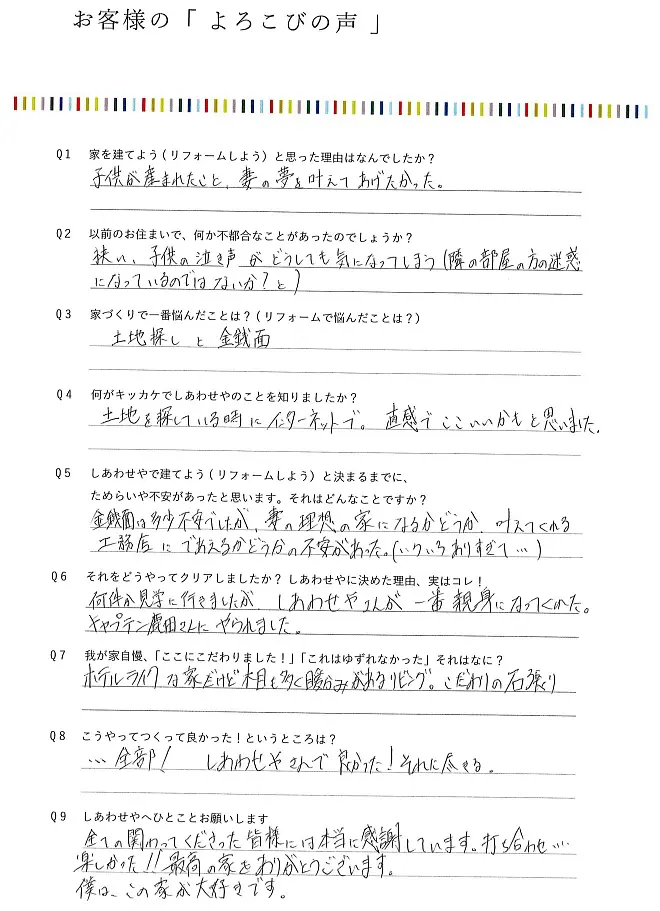 お客様の「よろこびの声」
Q1 家を建てよう(リフォームしよう)と思った理由はなんでしたか?
子供が産まれたこと、妻の夢を叶えてあげたかった。
Q2 以前のお住まいで、何か不都合なことがあったのでしょうか?
狭い、子供の泣き声がどうしても気になってしまう(隣の部屋の方の迷惑
になっているのではないか?と)
Q3 家づくりで一番悩んだことは?(リフォームで悩んだことは?)
土地探しと金銭面
Q4 何がキッカケでしあわせやのことを知りましたか?
土地を探している時にインターネットで。直感でここいいかもと思いました。
Q5 しあわせやで建てよう(リフォームしよう)と決まるまでに、
ためらいや不安があったと思います。それはどんなことですか?
金銭面は多少不安でしたが、妻の理想の家になるかどうか、叶えてくれる
工務店にであえるかどうかの不安があった。(いろいろありすぎて…)
Q6 それをどうやってクリアしましたか? しあわせやに決めた理由、実はコレ!
何件か見学に行きましたが、しあわせやさんが一番親身になってくれた。
キャプテン鹿田さんにやられました。
Q7 我が家自慢、「ここにこだわりました!」「これはゆずれなかった」それはなに?
ホテルライクな家だけど木目も多く暖かみがあるリビング。こだわりの石張り
Q8 こうやってつくって良かった!というところは?
…全部! しあわせやさんで良かった!それに尽きる。
Q9 しあわせやへひとことお願いします
全ての関わってくださった皆様には本当に感謝しています。打ち合わせ…
楽しかった!!最高の家をありがとうございます。
僕は、この家が大好きです。